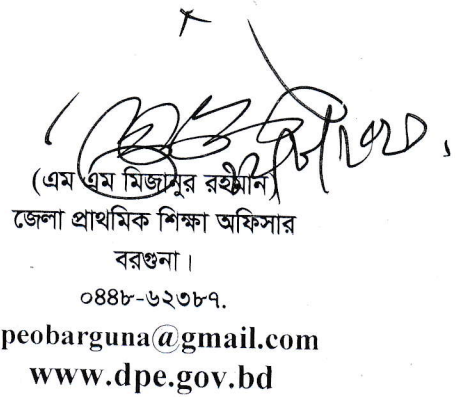 (এম এম মিজানুর রহমান)
জেলা প্রাথমিক শিক্ষা অফিসার
বরগুনা।
০৪৪৮-৬২৩৮৭.
peobarguna@gmail.com
www.dpe.gov.bd